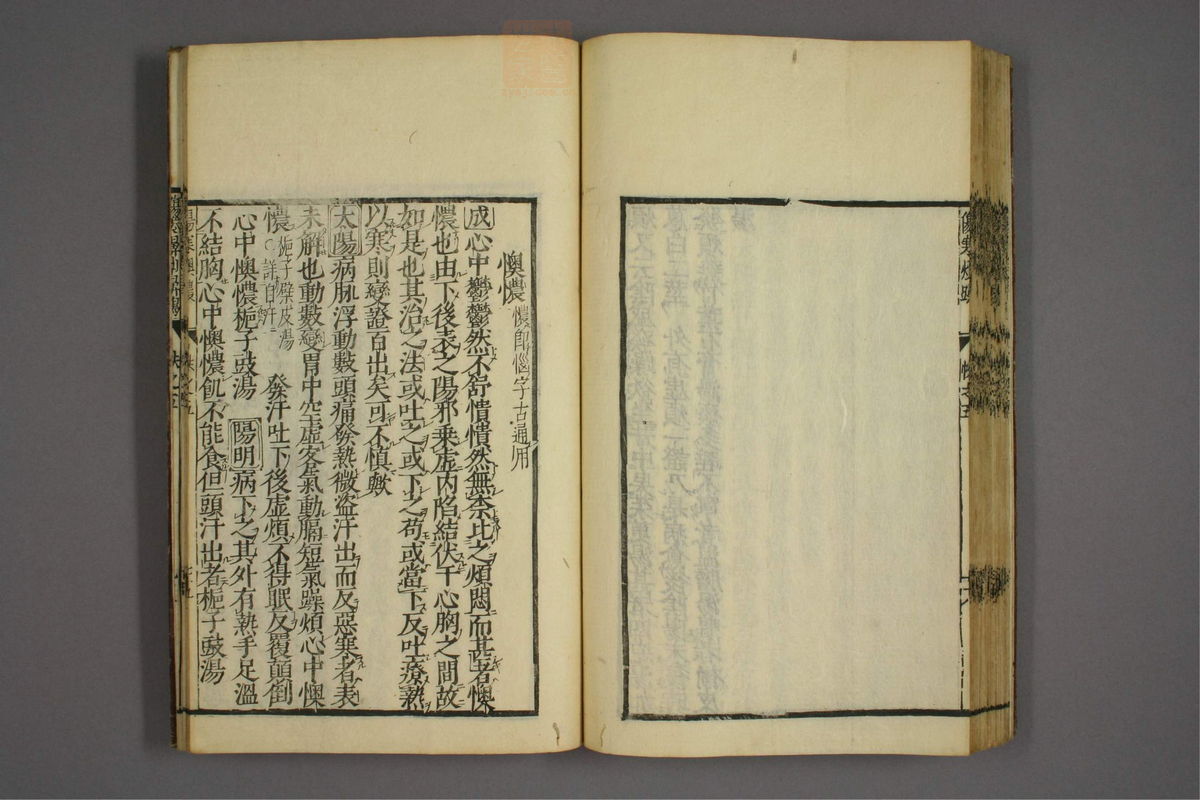 懊憹 憹即惱字古通用
成心中鬱鬱然不舒憒憒然無柰比之煩悶而甚者懊
憹也由下後表之陽邪乗虛内陷結伏于心胸之間故
如是也其治之法或吐之或下之苟或當下反吐療熱
以寒則變證百出矣可不慎歟
太陽病脉浮動數頭痛發熱微盜汗出而反惡寒者表
未解也動數變胃中空虛客氣動膈短氣躁煩心中懊
憹 梔子檗皮湯 ○詳自汗 發汗吐下後虛煩不得眠反覆顛倒
心中懊憹梔子豉湯 陽明病下之其外有熱手足溫
不結胸心中懊憹飢不能食但頭汗出者梔子豉湯
傷寒懊憹